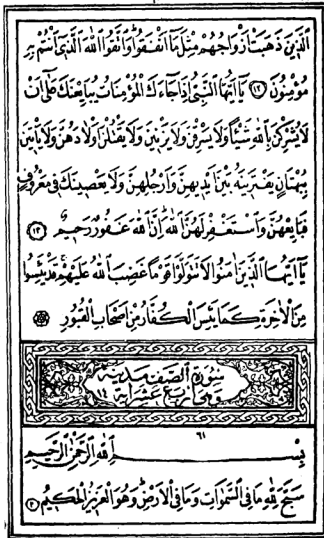 الَّذِينَ ذَهَبَتْ اَزْوَاجُهُمْ مِثْلَ مَا اَنْفَقُوا وَاتَّقُوا اللهَ الَّذِي اَنْتُمْ بِهِ
مُؤْمِنُونَ ﴿١٢﴾ يَا اَيُّهَا النَّبِيُّ اِذَا جَاءَكَ الْمُؤْمِنَاتُ يُبَايِعْنَكَ عَلَى اَنْ
لَا يُشْرِكْنَ بِاللهِ شَيْئًا وَلَا يَسْرِقْنَ وَلَا يَزْنِينَ وَلَا يَقْتُلْنَ اَوْلَادَهُنَّ وَلَا يَأْتِينَ
بِبُهْتَانٍ يَفْتَرِينَهُ بَيْنَ اَيْدِيهِنَّ وَاَرْجُلِهِنَّ وَلَا يَعْصِينَكَ فِي مَعْرُوفٍ
فَبَايِعْهُنَّ وَاسْتَغْفِرْ لَهُنَّ اللهَ اِنَّ اللهَ غَفُورٌ رَحِيمٌ ﴿١٣﴾
يَا اَيُّهَا الَّذِينَ اٰمَنُوا لَا تَتَوَلَّوْا قَوْمًا غَضِبَ اللهُ عَلَيْهِمْ قَدْ يَئِسُوا
مِنَ الْاٰخِرَةِ كَمَا يَئِسَ الْكُفَّارُ مِنْ اَصْحَابِ الْقُبُورِ
سورة الصف مدنية
وهي اربع عشر اية ١٤
٦١
بِسْمِ اللهِ الرَّحْمٰنِ الرَّحِيمِ
سَبَّحَ لِلهِ مَا فِي السَّمٰوَاتِ وَمَا فِي الْاَرْضِ وَهُوَ الْعَزِيزُ الْحَكِيمُ ﴿٢﴾